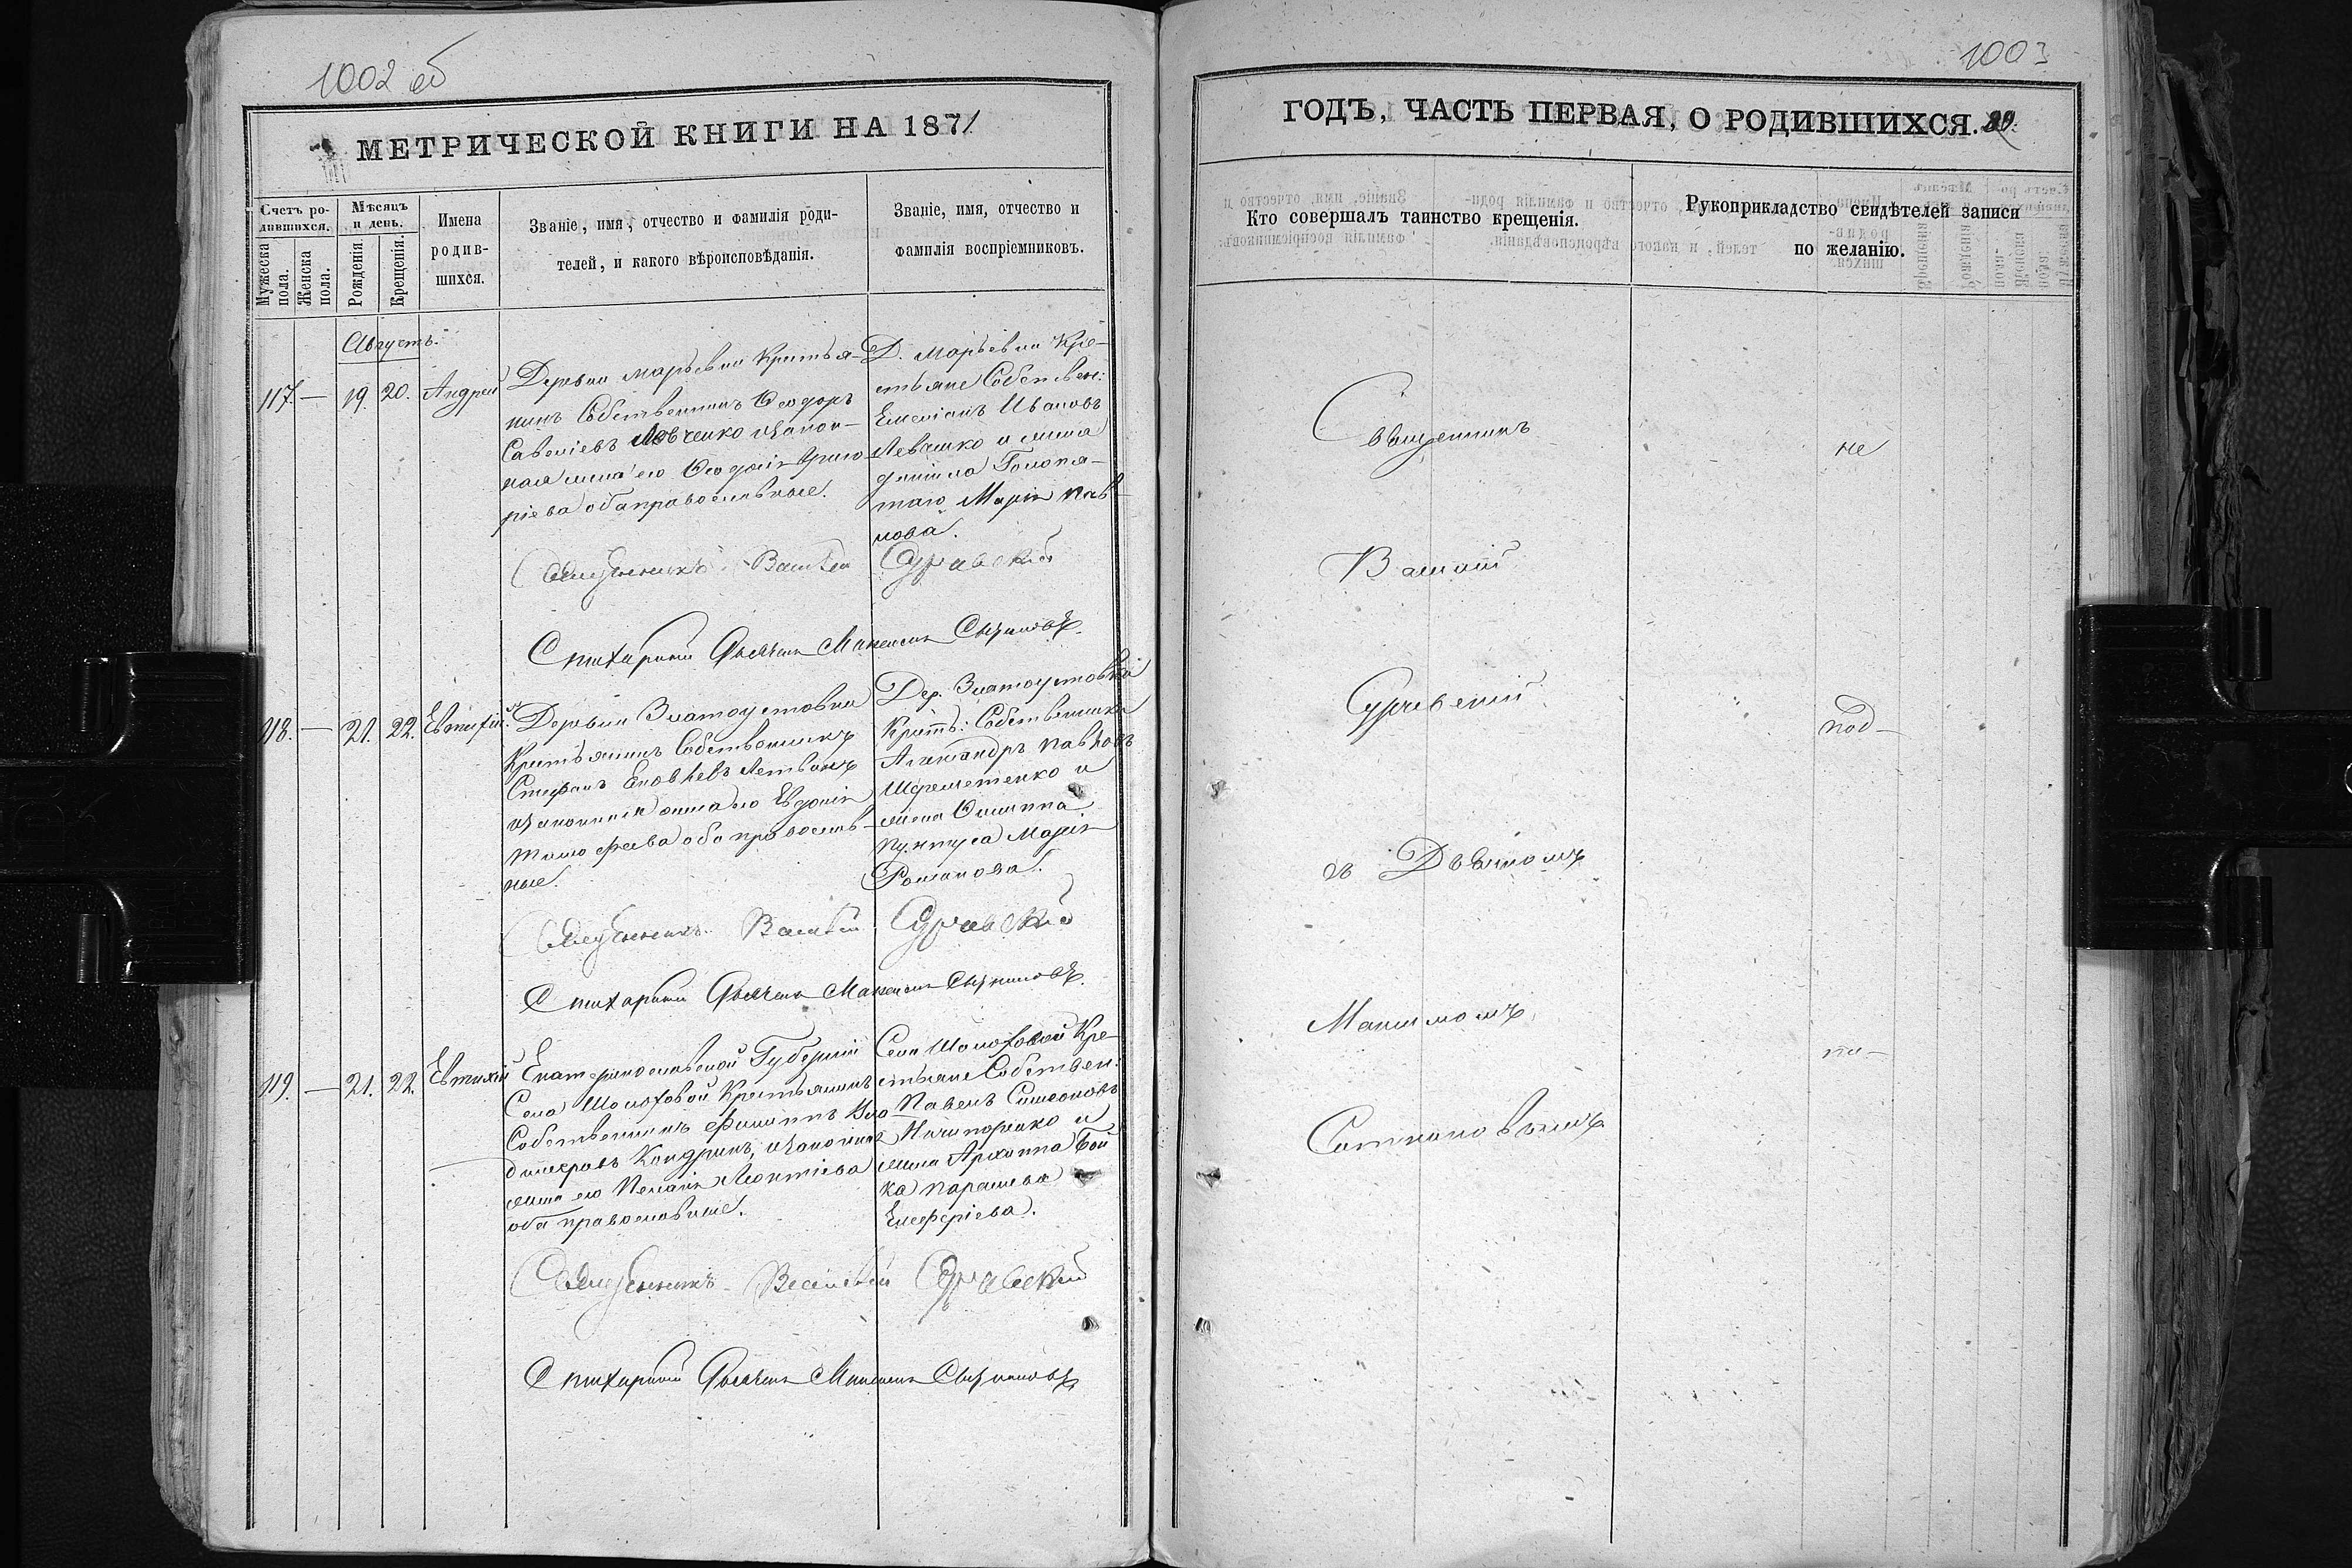 1002 об
МЕТРИЧЕСКОЙ КНИГИ НА 1871
Счетъ ро-
дившихся.
Мужеска пола.
Женска пола.
Мѣсяцъ
и день.
Рожденія.
Крещенія.
Имена
родив-
шихся.
Званіе, имя, отчество и фамилія роди-
телей, и какого вѣроисповѣданія.
Званіе, имя, отчество и
фамилія воспріемниковъ.
Августъ.
117. — 19. 20. Андрей
Деревни Марьевки Крестья-
нинъ Собственникъ Ѳеодоръ
Савеліевъ Левченко и закон-
ная жена его Ѳеодосія Григо-
ріева оба православные.
Д. Марьевки Кре-
стьяне Собствен:
Емеліанъ Ивановъ
Левашко и жена
Даніила Голопя-
таго Марія Пав-
лова.
Священникъ Василій Суравскій
Стихарный Дьячекъ Максимъ
118. — 21. 22. Евтихій.
Деревни Златоустовки
Крестьянинъ Собственникъ
Стефанъ Іаковлевъ
и законная жена его Евдокія
Тимофеева оба православ-
ные.
Дер. Златоустовки
Крестъ: Собственники
Александръ Павловъ
Шереметенко и
жена Филиппа
Марія
Романова.
Священникъ Василій Суравскій
Стихарный Дьячекъ Максимъ
119. — 21. 22. Евтихій
Екатеринославской Губерніи
Села Шолоховой Крестьянинъ
Собственникъ Филиппъ Вла-
диміровъ Кондринъ, и законная
жена его Пелагія Леонтіева
оба православные.
Села Шолоховой Кре-
стьяне Собствен:
Павелъ Симеоновъ
Ничипоренко и
жена Архиппа Бой
ка Параскева
Елеферіева.
Священникъ Василій Суравскій
Стихарный Дьячекъ Максимъ
1003
ГОДЪ, ЧАСТЬ ПЕРВАЯ, О РОДИВШИХСЯ.
Кто совершалъ таинство крещенія.
Рукоприкладство свидѣтелей записи
по желанію.
Священникъ
не
Василій
Суравскій
под-
съ Дьячкомъ
Максимомъ